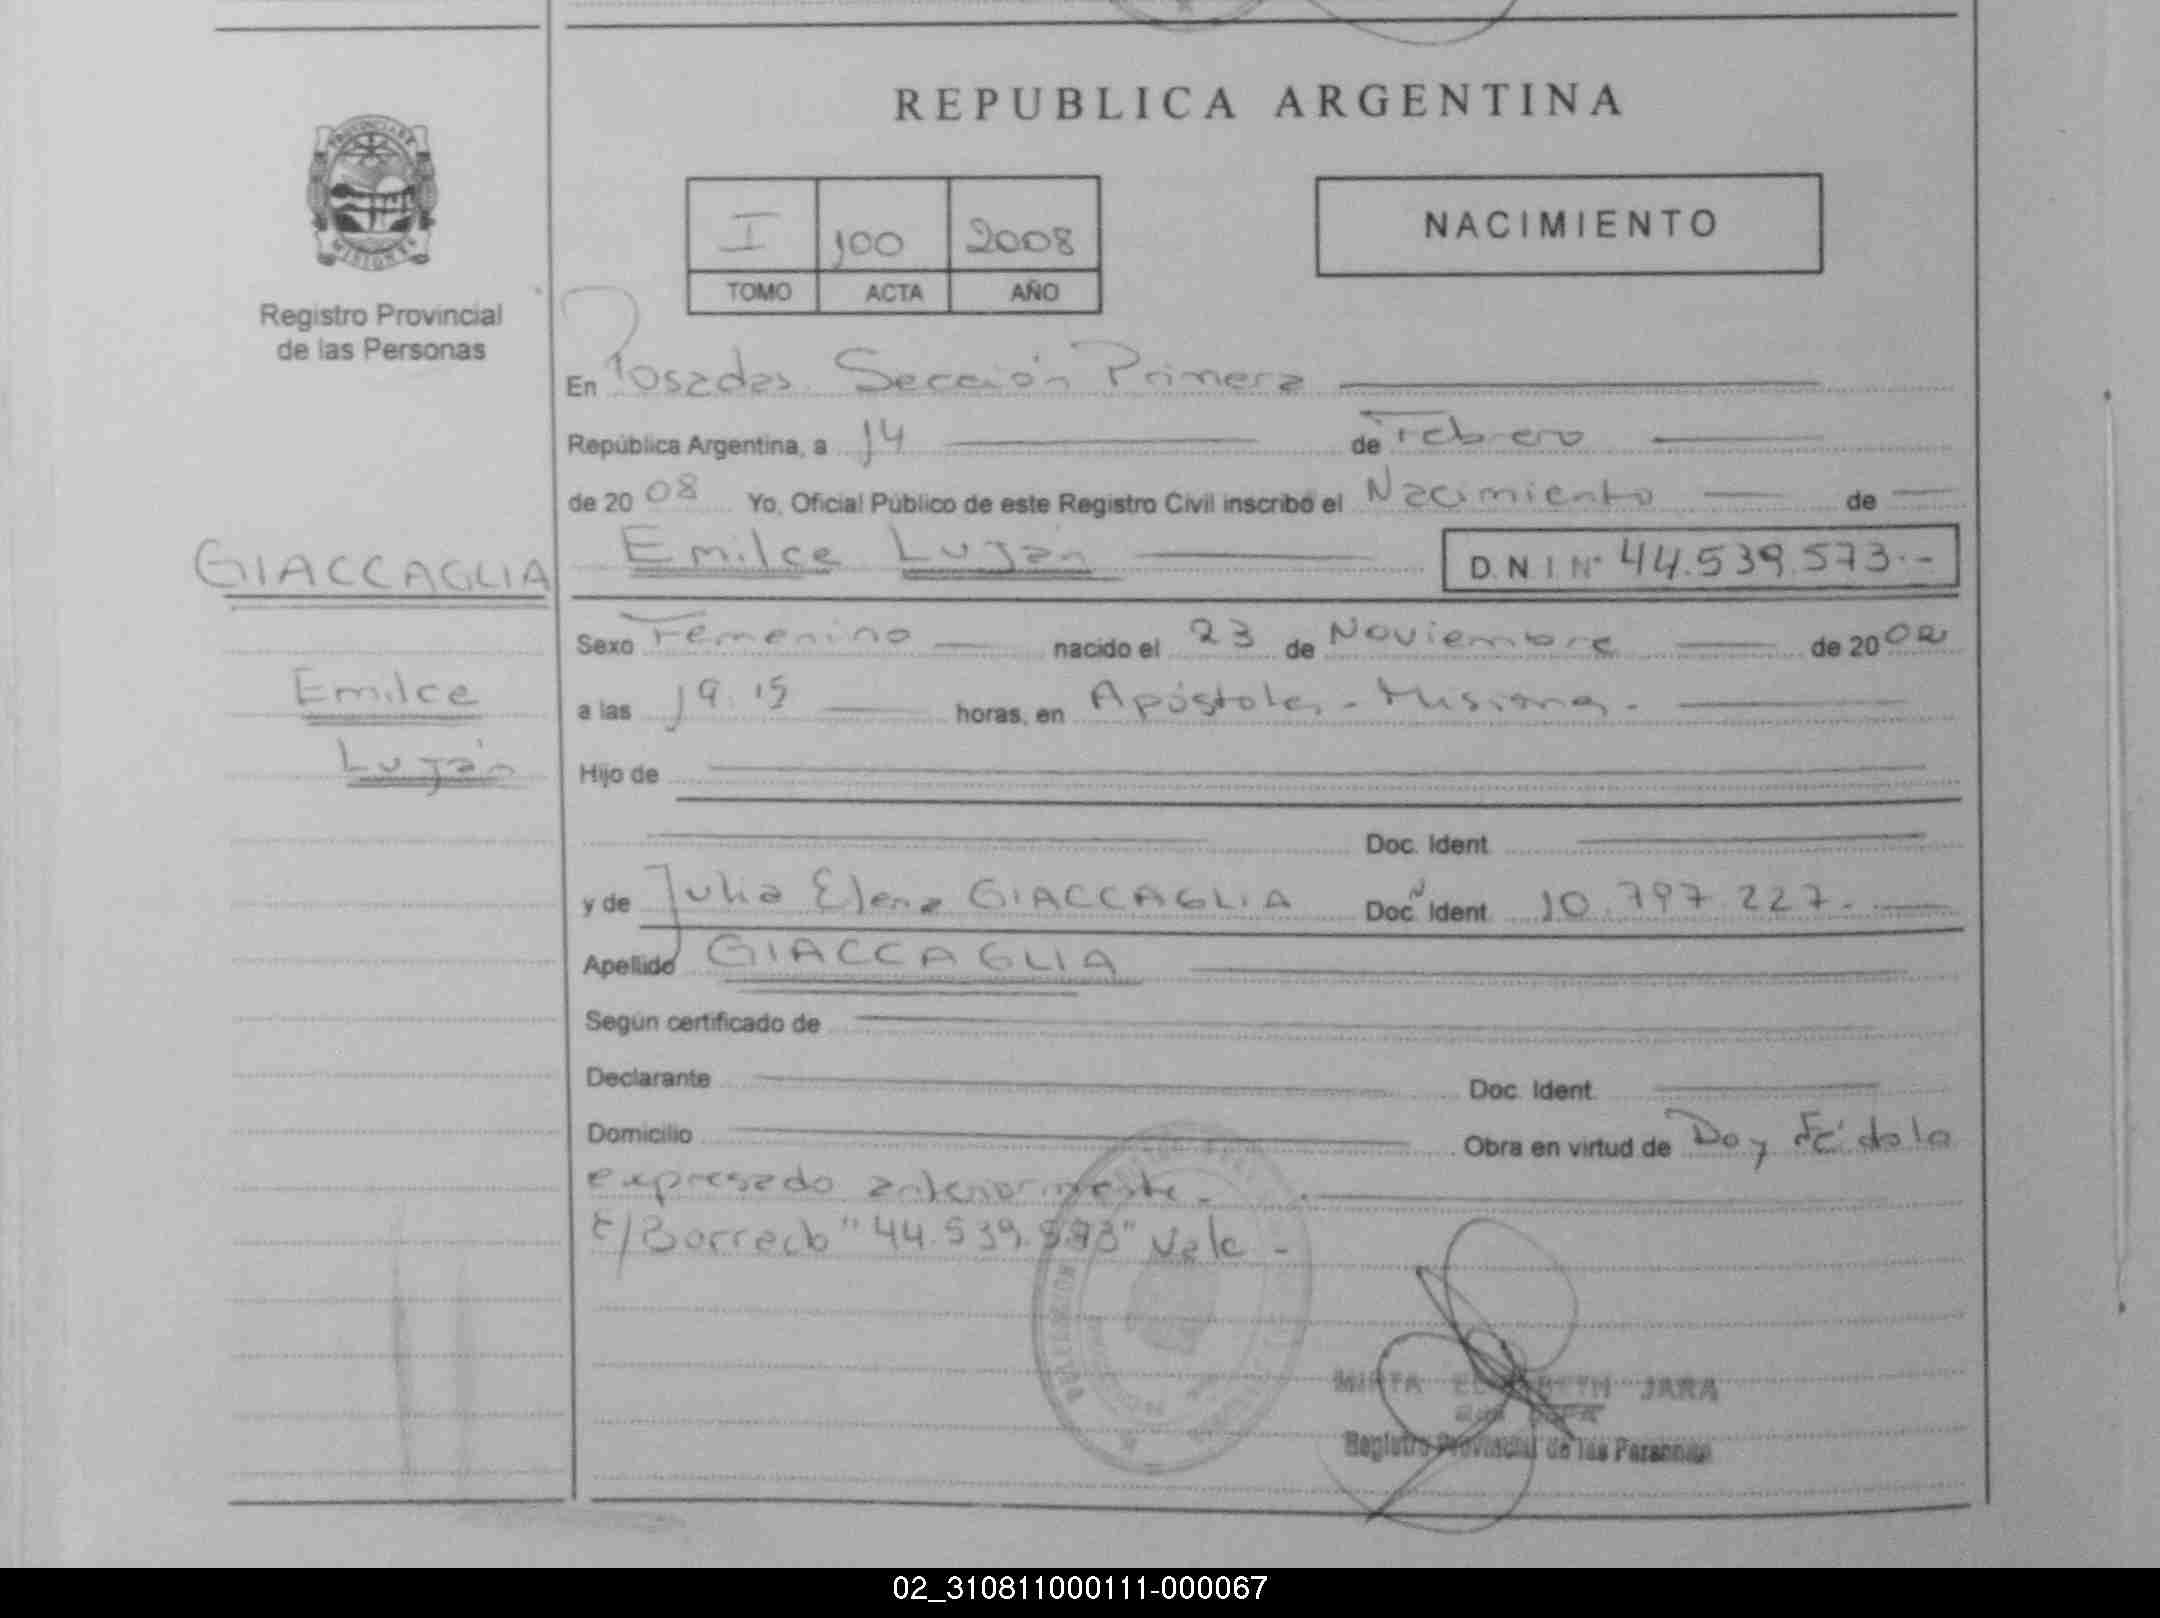 REPUBLICA ARGENTINA
PROVINCIA DE
MISIONES
Registro Provincial
de las Personas
I 100 2008
TOMO ACTA AÑO
NACIMIENTO
En Posadas Sección Primera
República Argentina, a 14 de Febrero
de 2008 Yo, Oficial Público de este Registro Civil inscribo el Nacimiento de
GIACCAGLIA
Emilce
Luján
Emilce Luján D.N.I. Nº 44.539.573.-
Sexo Femenino nacido el 23 de Noviembre de 2002
a las 19.15 horas, en Apóstoles - Misiones.
Hijo de
Doc. Ident.
y de Julia Elena GIACCAGLIA Doc. Ident. 10.797.227.
Apellido GIACCAGLIA
Según certificado de
Declarante Doc. Ident.
Domicilio Obra en virtud de Doy Fé de lo
expresado anteriormente.
E/Borrado "44.539.573" Vale -
MIRTA ELIZABETH JARA
Registro Provincial de las Personas
02_310811000111-000067